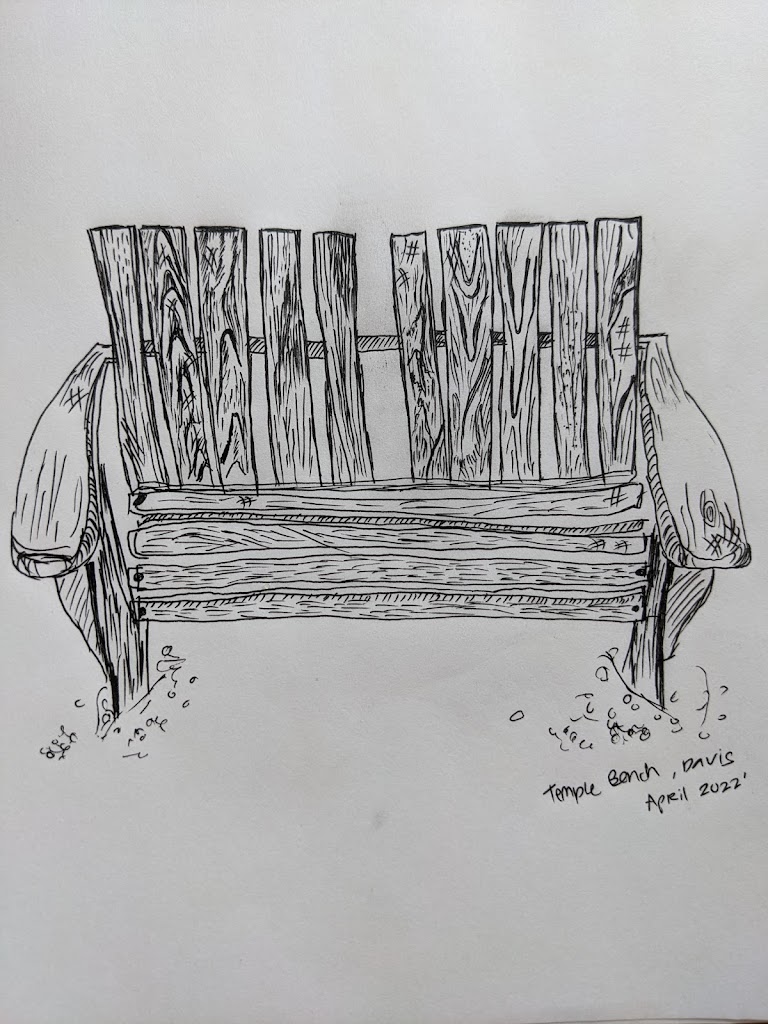 Temple Bench, Davis
April 2022'